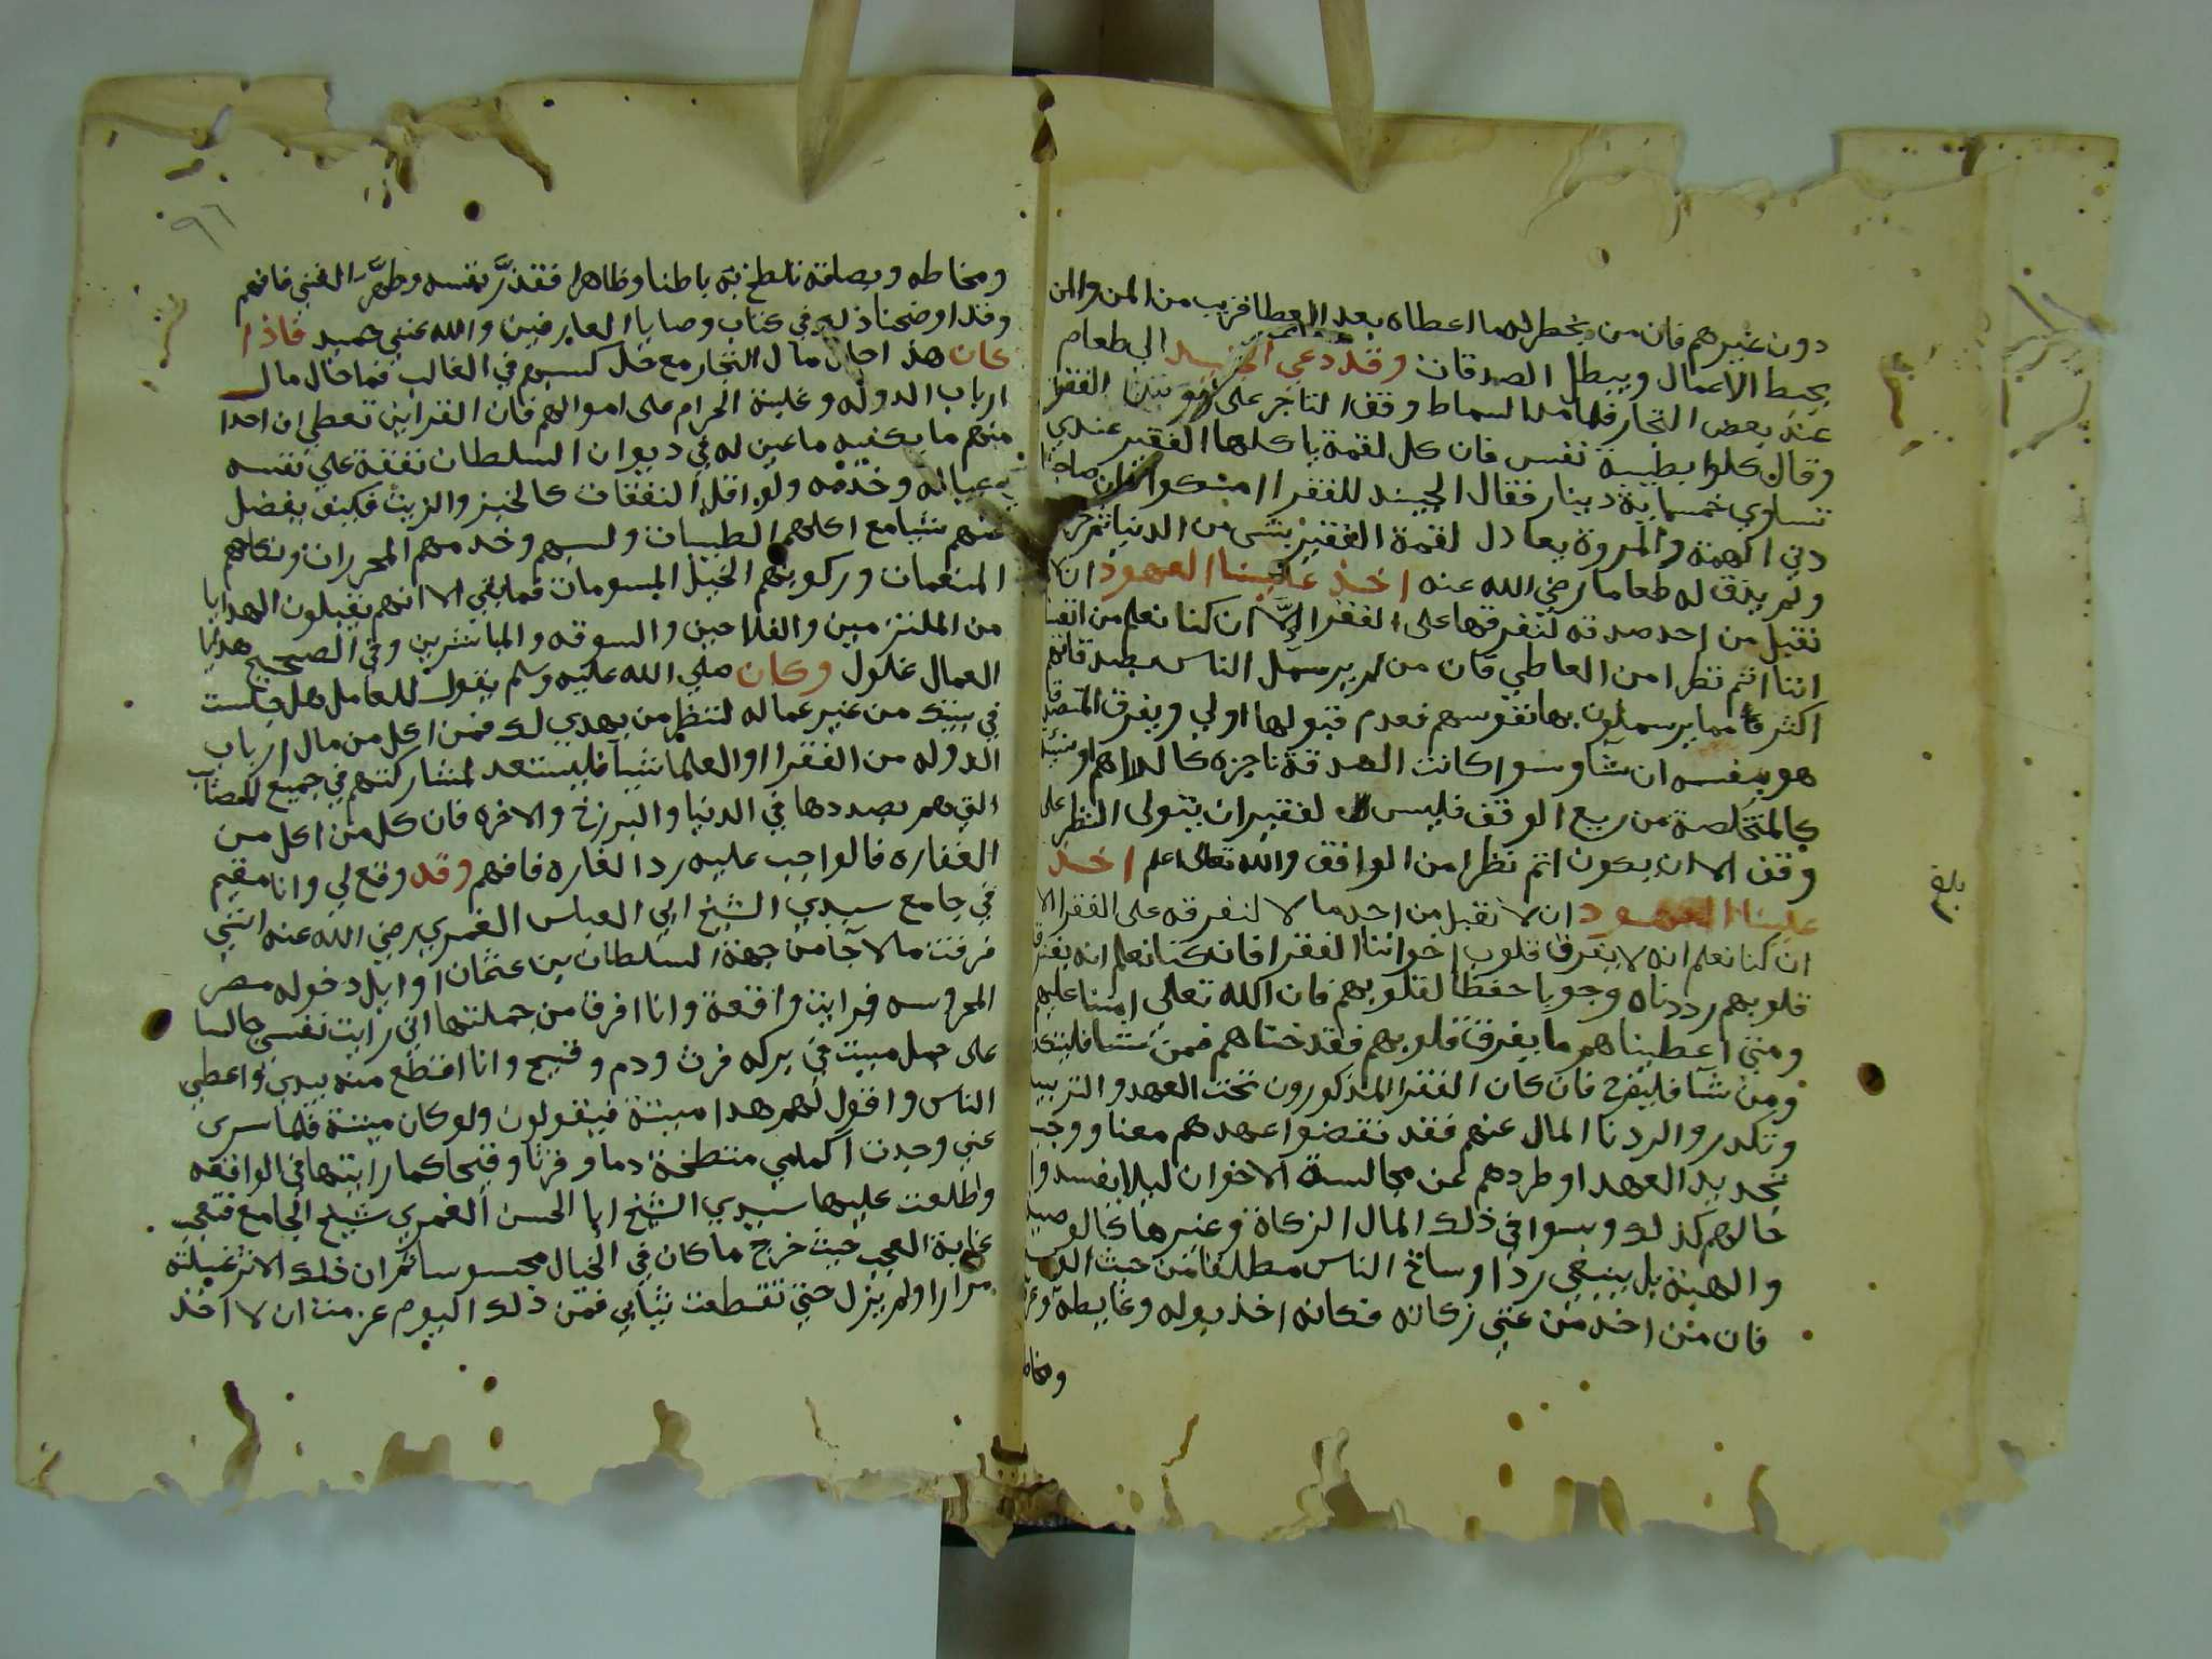 دون غيرهم فان من يخطر له ما اعطاه بعد العطا قريب من المن والمن
يحبط الاعمال ويبطل الصدقات وقد دعي الجنيد الي طعام
عند بعض التجار فلما مد السماط وقف التاجر على الفقرا
وقال كلوا بطيبة نفس فان كل لقمة ياكلها الفقير عندي
تساوي خمسماية دينار فقال الجنيد للفقرا امسكوا فان صاحبنا
دني الهمة والمروة يعادل لقمة الفقير بشي من الدنيا ثم خرج
ولم يذق له طعاما رضي الله عنه اخذ علينا العهود ان لا
نقبل من احد صدقه لنفرقها على الفقرا الا ان كنا نعلم من انفسنا
اننا اتم نظرا من العاطي فان من لم ير سمل الناس بصدقاتهم
اكثر مما يرسملون بها نفوسهم فعدم قبولها اولي ويفرق المتصدق
هو بنفسه ان شا وسوا كانت الصدقة ناجزه كالدراهم او
كالمتخلصة من ريع الوقف فليس لفقير ان يتولى النظر على
وقف الا ان يكون اتم نظرا من الواقف والله تعالى اعلم اخذ
علينا العهود ان لا نقبل من احد مالا لنفرقه على الفقرا الا
ان كنا نعلم انه لا يفرق قلوب اخواننا الفقرا فان كنا نعلم انه يفرق
قلوبهم رددناه وجوبا حفظا لقلوبهم فان الله تعالى امننا عليهم
ومتي اعطيناهم ما يفرق قلوبهم فقد خناهم فمن شا فليتكدر
ومن شا فليفرح فان كان الفقرا المذكورون تحت العهد والتربية
وتكدروا لردنا المال عنهم فقد نقضوا عهدهم معنا ووجب
تجديد العهد او طردهم عن مجالسة الاخوان ليلا يفسدوا
حالهم كذلك وسوا في ذلك المال الزكاة وغيرها كالوصية
والهبة بل ينبغي رد اوساخ الناس مطلقا من حيث
فان من اخذ من غني زكاته فكانه اخذ بوله وغايطه
ومخاطه
بلغ
٩٦
ومخاطه وبصاقه تلطخ به باطنا وظاهرا فقذر نفسه وطهر الغني فافهم
وقد اوضحنا ذلك في كتاب وصايا العارفين والله غني حميد فاذا
كان هذا حال مال التجار مع حل كسبهم في الغالب فما حال مال
ارباب الدوله وغلبة الحرام على اموالهم فان القراين تعطي ان احدا
منهم ما يكفيه ما عين له في ديوان السلطان نفقة علي نفسه
عياله وخدمه ولو اقل النفقات كالخبز والزيت فكيف يفضل
عنهم شيا مع اكلهم الطيبات ولبسهم وخدمهم المحررات ونكاحهم
المنعمات وركوبهم الخيل المسومات فما بقي الا انهم يقبلون الهدايا
من الملتزمين والفلاحين والسوقه والمباشرين وفي الصحيح هدايا
العمال غلول وكان صلي الله عليه وسلم يقول للعامل هل جلست
في بيتك من غير عماله لتنظر من يهدي لك فمن اكل من مال ارباب
الدوله من الفقرا او العلما شيا فليستعد لمشاركتهم في جميع المصايب
التي هم بصددها في الدنيا والبرزخ والاخره فان كل من اكل من
الغفاره فالواجب عليه رد الغاره فافهم وقد وقع لي وانا مقيم
في جامع سيدي الشيخ ابي العباس الغمري رضي الله عنه انني
فرقت مالا جا من جهة السلطان بن عثمان اوايل دخوله مصر
المحروسه فرايت واقعة وانا افرق من جملتها اني رايت نفسي جالسا
على جمل ميت في بركه فرث ودم وقيح وانا اقطع منه بيدي واعطي
الناس واقول لهم هذا ميتة فيقولون ولو كان ميتة فلما سري
عني وجدت اكمامي متطخة دما وفرثا وقيحا كما رايتها في الواقعه
واطلعت عليها سيدي الشيخ ابا الحسن الغمري شيخ الجامع فتعجب
غاية العجب حيث خرج ما كان في الخيال محسوسا ثم ان ذلك الاثر غسلته
مرارا ولم يزل حتي تقطعت ثيابي فمن ذلك اليوم عزمت ان لا اخذ